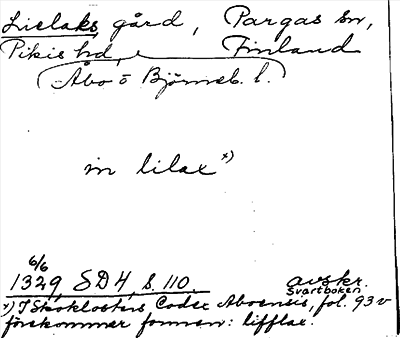 Lielaks gård, Pargas sn,
Pikis hd, Finland
(Åbo o Björneb. l.)
in lilax x)
6/6
1329, SD 4, s. 110. avskr.
Svartboken
x) I Skoklosters Codex Aboensis, fol. 93 v
förekommer formen: lifflax.